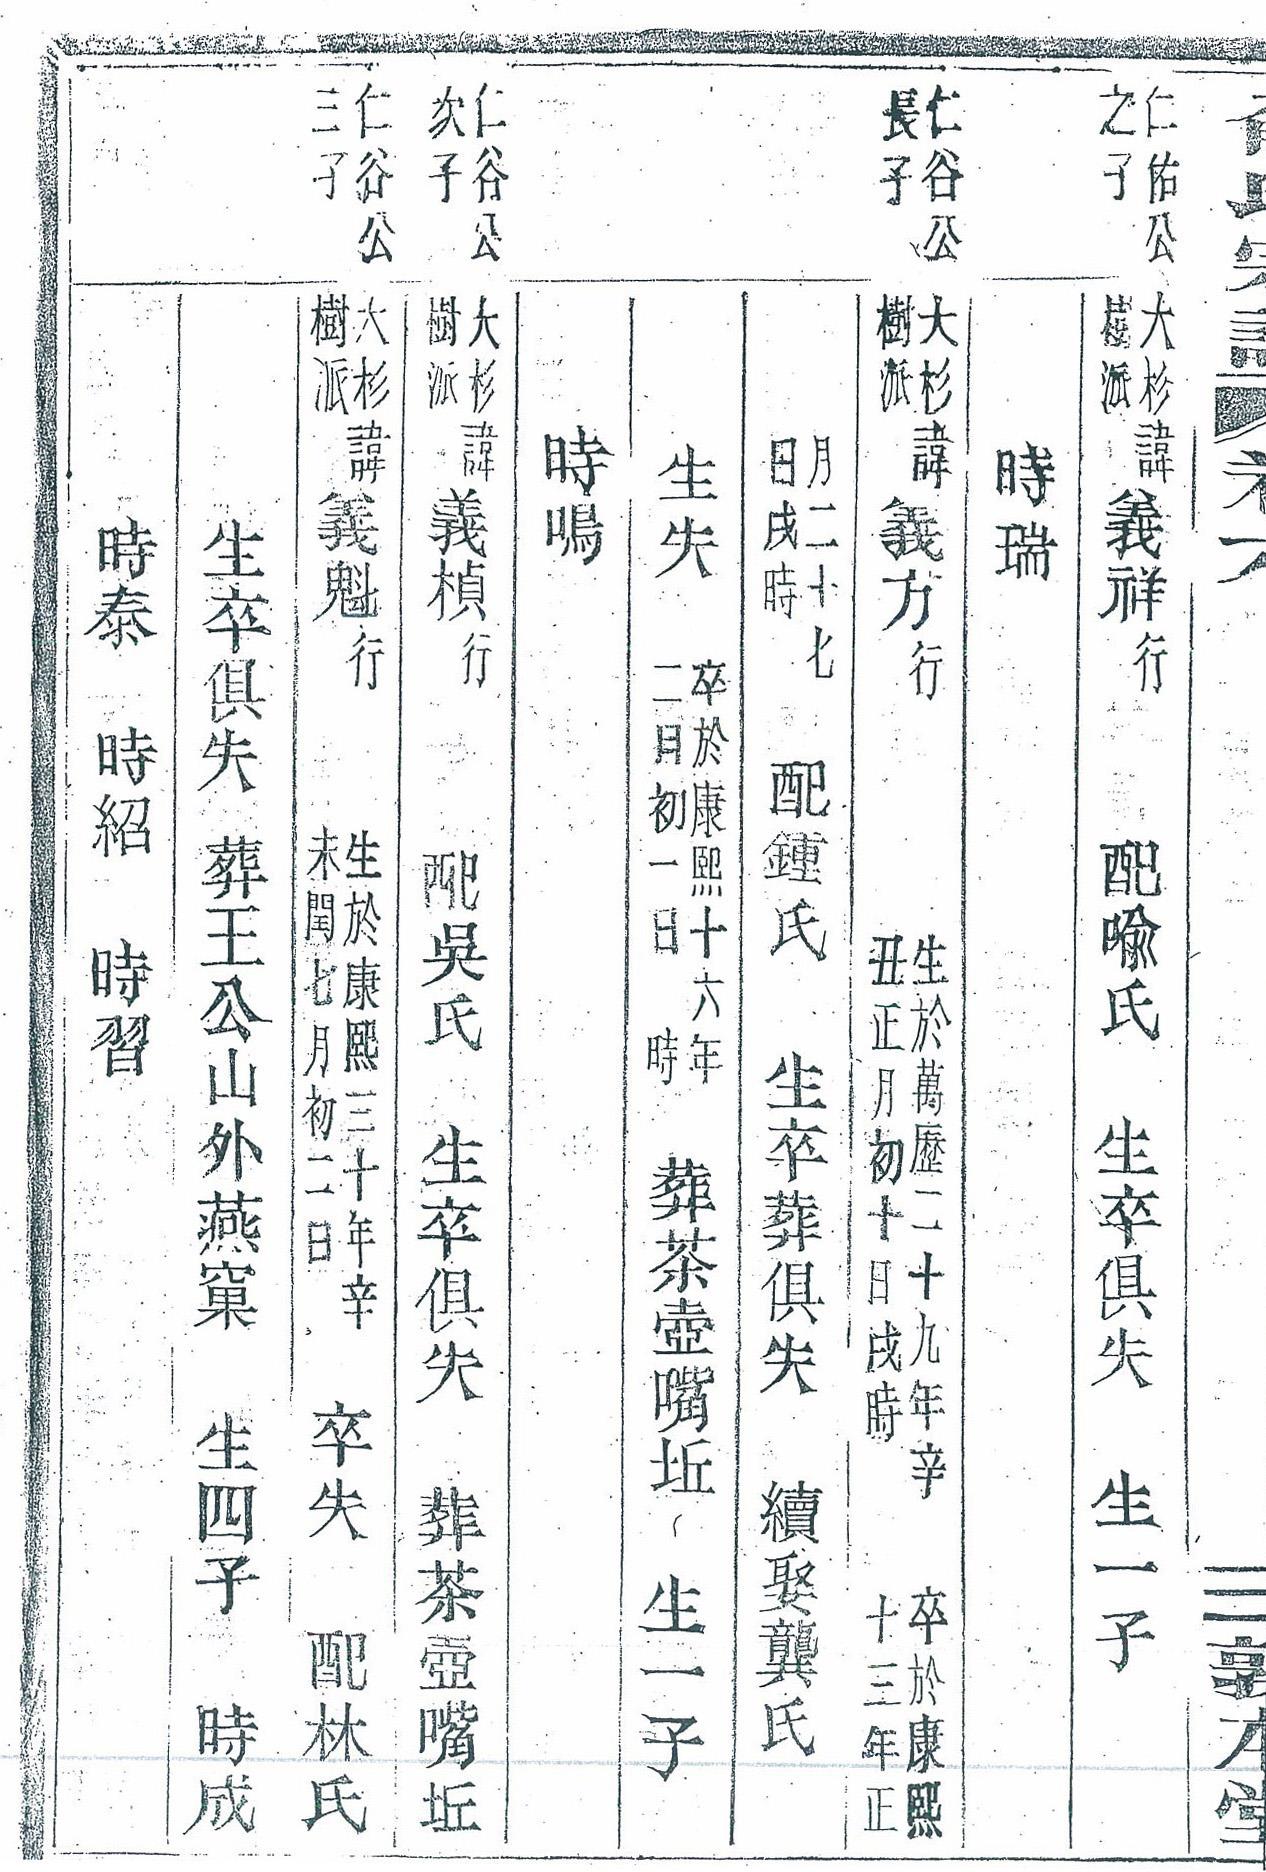 氏宗譜 卷六 三 敦本堂
仁佑公
之子
大杉
樹派
諱義祥行 配喻氏 生卒俱失 生一子
時瑞
仁谷公
長子
大杉
樹派
諱義方行
生於萬歷二十九年辛
丑正月初十日戌時
卒於康熙
十三年正
月二十七
日戌時
配鍾氏 生卒葬俱失 續娶龔氏
生失
卒於康熙十六年
二月初一日 時
葬茶壺嘴坵 生一子
時鳴
仁谷公
次子
大杉
樹派
諱義楨行 配吳氏 生卒俱失 葬茶壺嘴坵
仁谷公
三子
大杉
樹派
諱義魁行
生於康熙三十年辛
未閏七月初二日
卒失 配林氏
生卒俱失 葬王公山外燕窠 生四子 時成
時泰 時紹 時習